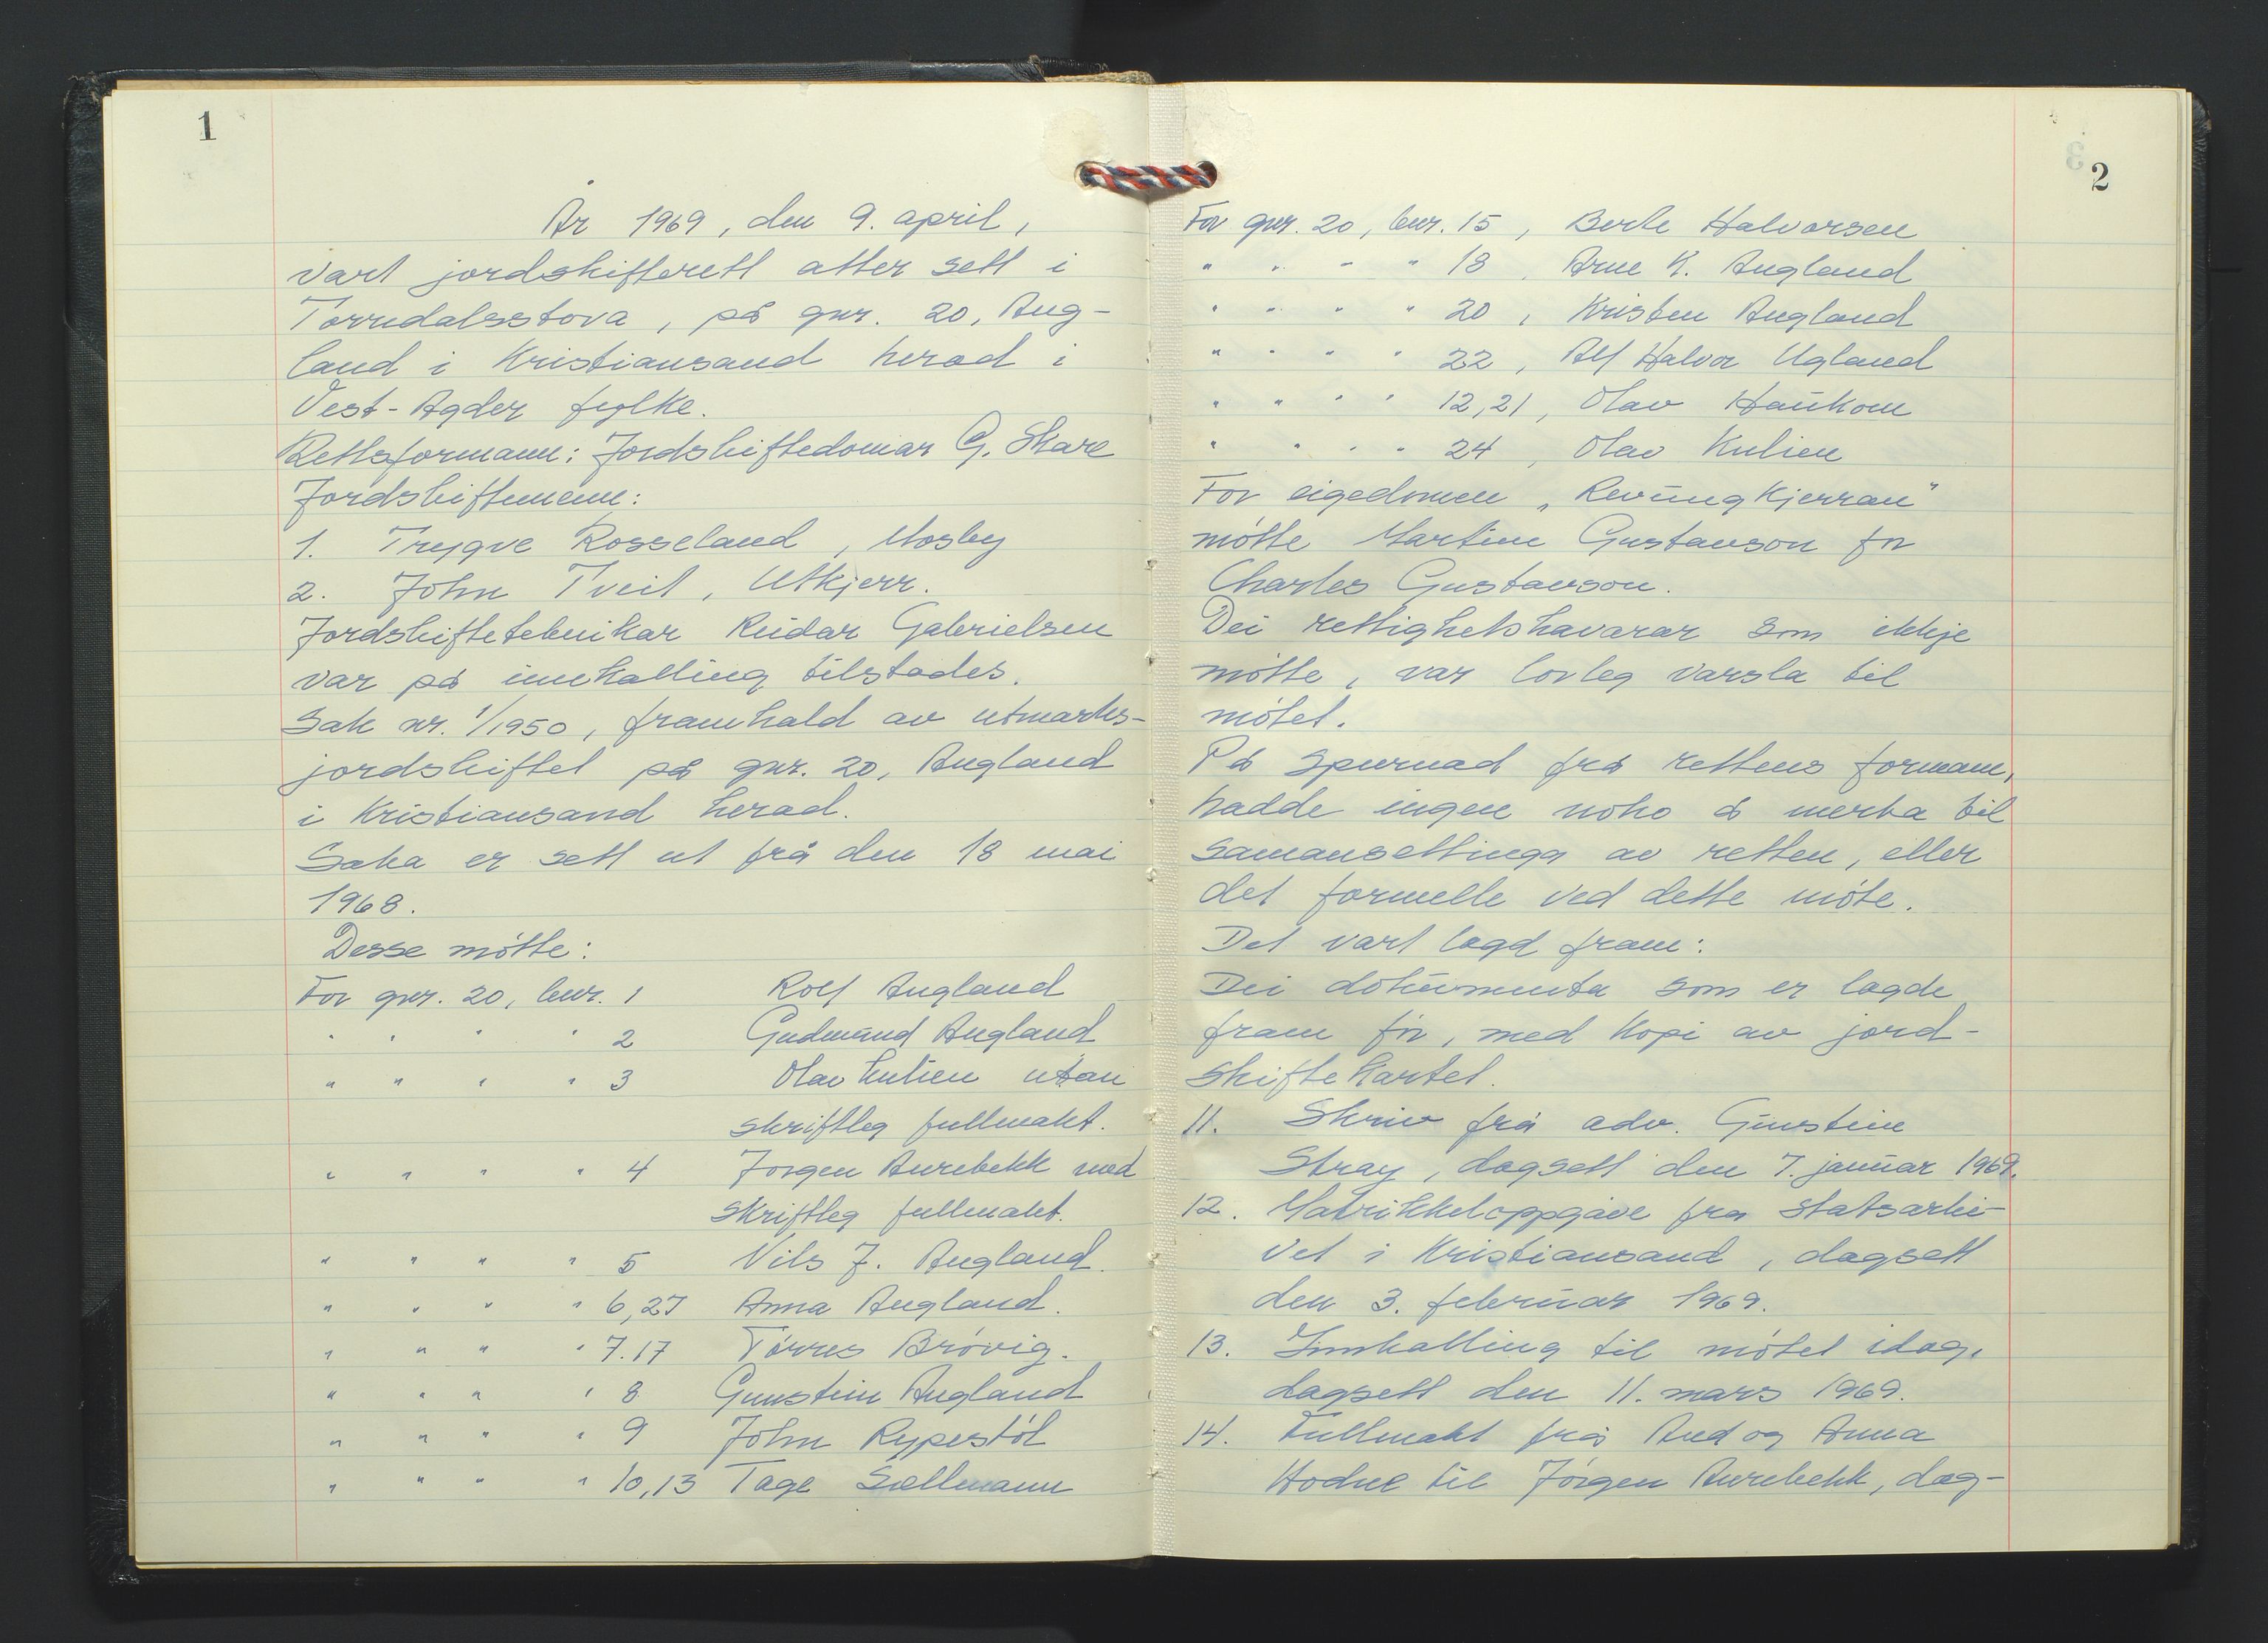 1
År 1969, den 9. april,
vart jordskifterett atter sett i
Torridalsstova, på gnr. 20, Aug-
land i Kristiansand herad i
Vest-Agder fylke.
Rettsformann: Jordskiftedomar G. Skare
Jordskiftemenn:
1. Trygve Rosseland, Mosby
2. John Tveit, Utkjerr.
Jordskifteteknikar Reidar Gabrielsen
var på innkalling tilstades.
Sak nr. 1/1950, framhald av utmarks-
jordskiftet på gnr. 20, Augland
i Kristiansand herad.
Saka er sett ut frå den 18 mai
1968.
Desse møtte:
For gnr. 20, bnr. 1 Rolf Augland
" " " " 2 Gudmund Augland
" " " " 3 Olav Kulien utan
skriftleg fullmakt.
" " " " 4 Jørgen Aurebekk med
skriftleg fullmakt.
" " " " 5 Nils J. Augland.
" " " " 6,27 Anna Augland.
" " " " 7.17 Tørres Brøvig.
" " " " 8 Gunstein Augland
" " " " 9 John Rypestøl
" " " " 10,13 Tage Sællmann
2
For gnr. 20, bnr. 15, Berte Halvorsen
" " " " 18, Arne K. Augland
" " " " 20, Kristen Augland
" " " " 22, Alf Halvor Ugland
" " " " 12,21, Olav Haukom
" " " " 24, Olav Kulien
For eigedomen „Revungkjerran"
møtte Martin Gustavson for
Charles Gustavson.
Dei rettighetshavarar som ikkje
møtte, var lovleg varsla til
møtet.
På spurnad frå rettens formann,
hadde ingen noko å merka til
samansettinga av retten, eller
det formelle ved dette møte.
Det vart lagd fram:
Dei dokumenta som er lagde
fram før, med kopi av jord-
skiftekartet.
11. Skriv frå adv. Gunstein
Stray, dagsett den 7. januar 1969.
12. Matrikkeloppgåve fra statsarki-
vet i Kristiansand, dagsett
den 3. februar 1969.
13. Innkalling til møtet idag,
dagsett den 11. mars 1969.
14. Fullmakt frå Aud og Anna
Hodne til Jørgen Aurebekk, dag-